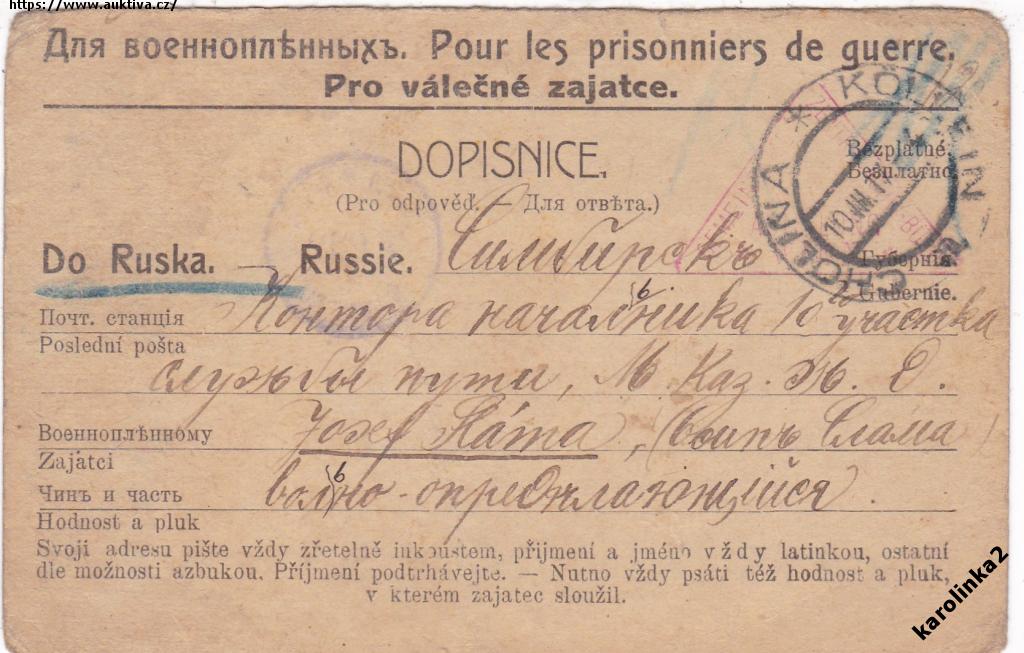 https://www.auktiva.cz/
Для военноплѣнныхъ. Pour les prisonniers de guerre.
Pro válečné zajatce.
DOPISNICE.
Bezplatně.
Безплатно.
(Pro odpověď. — Для отвѣта.)
Do Ruska. — Russie. Симбирскъ
Губернія.
Gubernie.
CHOLINA * KÖLLEIN
10.III.17
Почт. станція Контора начальника 10 участка
Poslední pošta
службы пути, М. Каз. ж. д.
Военноплѣнному Josef Káňa, (Слама)
Zajatci
Чинъ и часть вольно-опредѣляющійся.
Hodnost a pluk
Svoji adresu pište vždy zřetelně inkoustem, přijmení a jméno vždy latinkou, ostatní
dle možnosti azbukou. Příjmení podtrhávejte. — Nutno vždy psáti též hodnost a pluk,
v kterém zajatec sloužil.
karolinka2